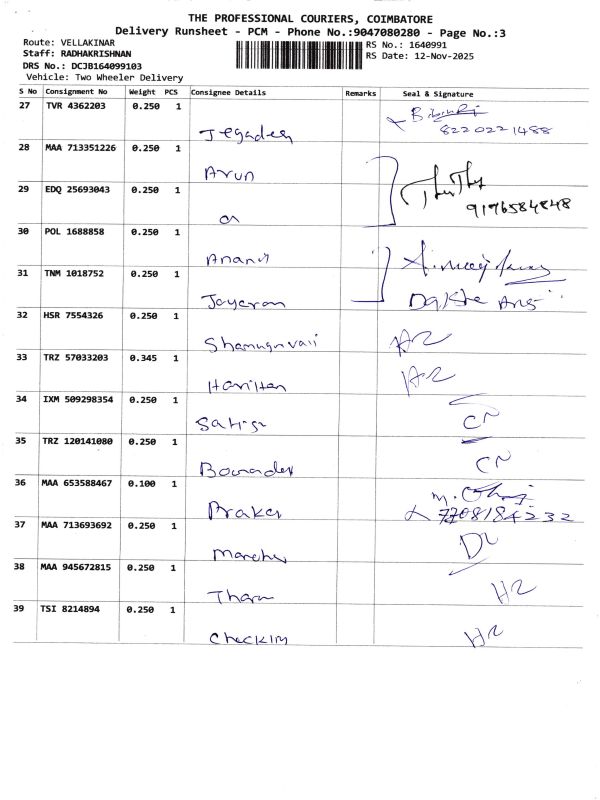 THE PROFESSIONAL COURIERS, COIMBATORE
Delivery Runsheet - PCM - Phone No.:9047080280 - Page No.:3
Route: VELLAKINAR
RS No.: 1640991
Staff: RADHAKRISHNAN
RS Date: 12-Nov-2025
DRS No.: DCJB164099103
Vehicle: Two Wheeler Delivery
S No Consignment No Weight PCS Consignee Details Remarks Seal & Signature
27 TVR 4362203 0.250 1
Jegadees 8220221488
28 MAA 713351226 0.250 1
Arun
29 EDQ 25693043 0.250 1
9176584848
30 POL 1688858 0.250 1
Anand
31 TNM 1018752 0.250 1
Jayaram
32 HSR 7554326 0.250 1
33 TRZ 57033203 0.345 1
34 IXM 509298354 0.250 1
CN
35 TRZ 120141080 0.250 1
CN
36 MAA 653588467 0.100 1
7708184232
37 MAA 713693692 0.250 1
38 MAA 945672815 0.250 1
39 TSI 8214894 0.250 1